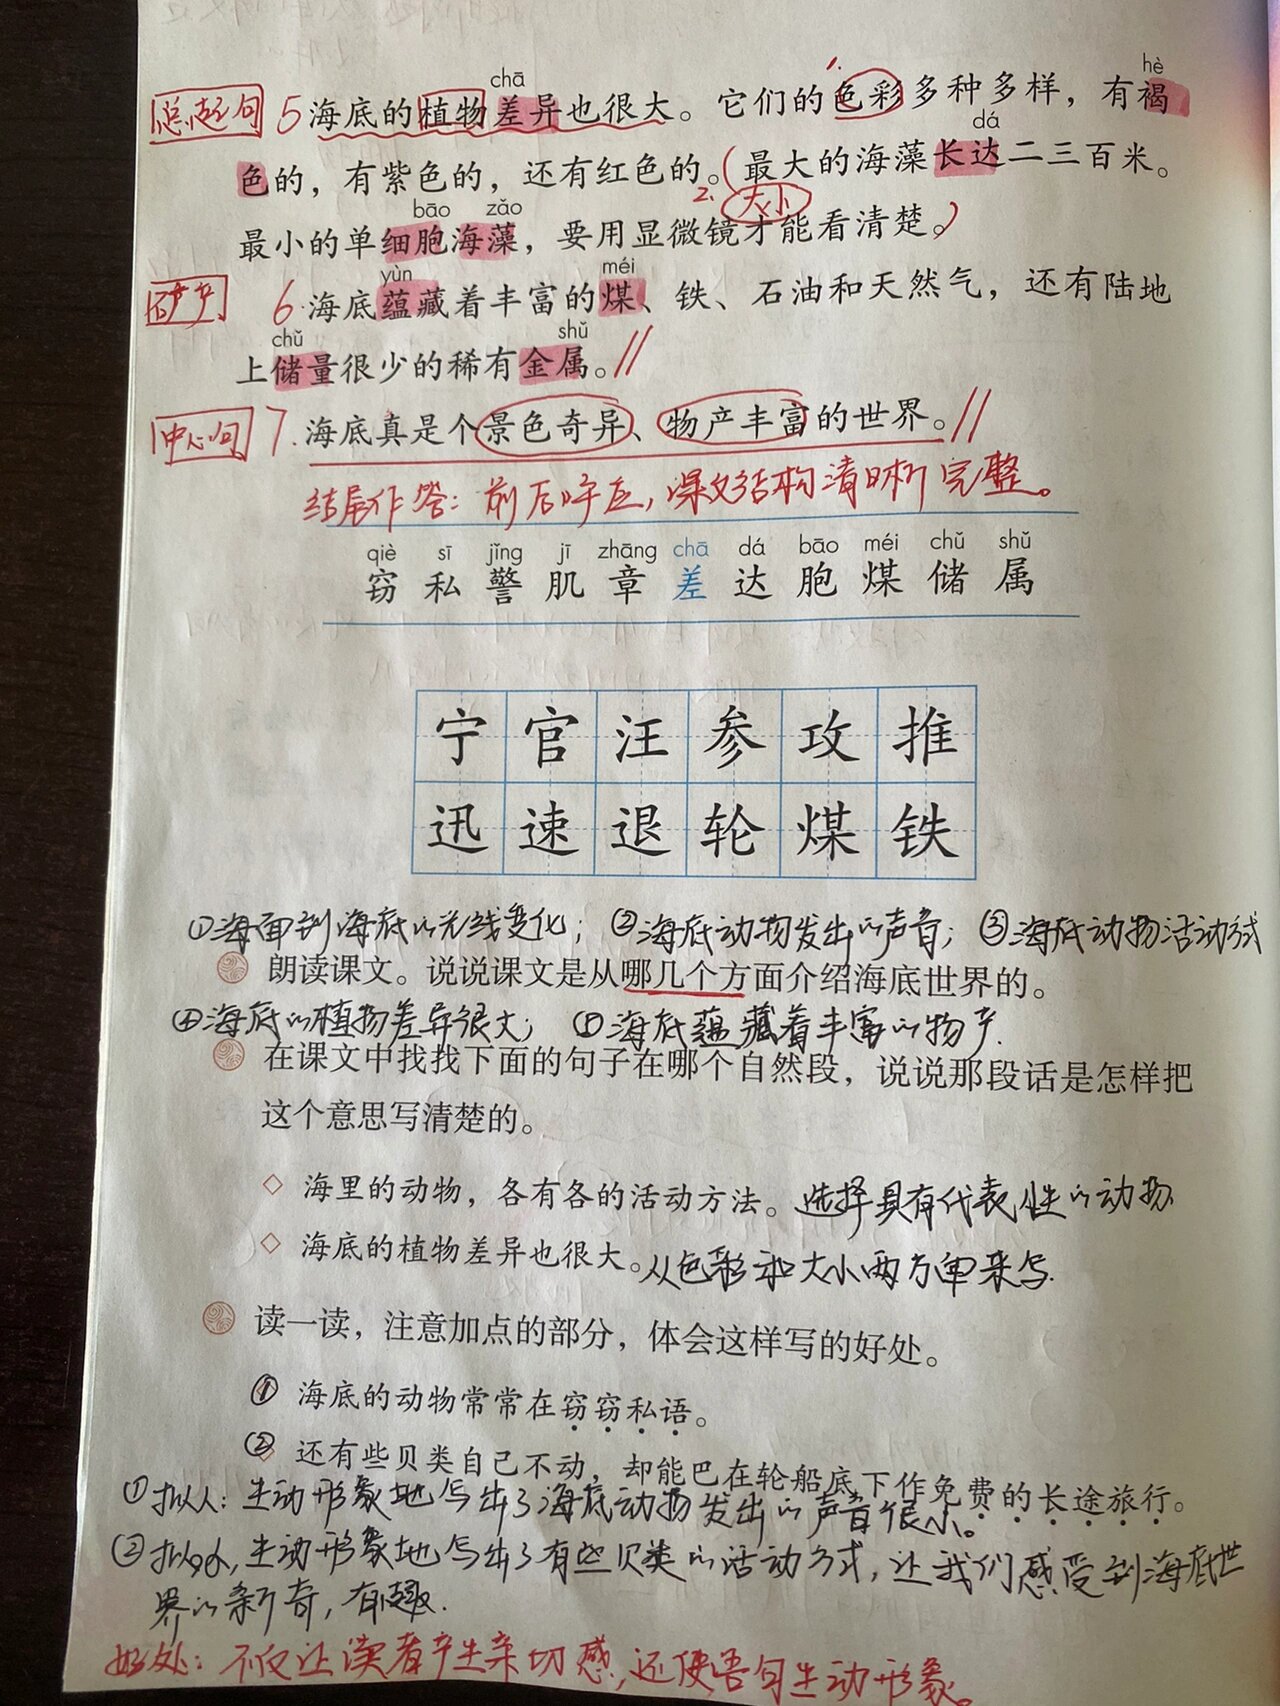 chā hè
总起句 5 海底的植物差异也很大。它们的色彩多种多样，有褐
dá
色的，有紫色的，还有红色的。（最大的海藻长达二三百米。
1. 2. 大小
bāo zǎo
最小的单细胞海藻，要用显微镜才能看清楚。）
yùn méi
矿产 6 海底蕴藏着丰富的煤、铁、石油和天然气，还有陆地
chǔ shǔ
上储量很少的稀有金属。//
中心句 7. 海底真是个景色奇异、物产丰富的世界。//
结尾作答：前后呼应，课文结构清晰完整。
qiè sī jǐng jī zhāng chā dá bāo méi chǔ shǔ
窃 私 警 肌 章 差 达 胞 煤 储 属
宁 官 汪 参 攻 推
迅 速 退 轮 煤 铁
①海面到海底的光线变化；②海底动物发出的声音；③海底动物活动方式
朗读课文。说说课文是从哪几个方面介绍海底世界的。
④海底的植物差异很大；⑤海底蕴藏着丰富的物产.
在课文中找找下面的句子在哪个自然段，说说那段话是怎样把
这个意思写清楚的。
◇ 海里的动物，各有各的活动方法。选择具有代表性的动物
◇ 海底的植物差异也很大。从色彩和大小两方面来写.
读一读，注意加点的部分，体会这样写的好处。
① 海底的动物常常在窃窃私语。
② 还有些贝类自己不动，却能巴在轮船底下作免费的长途旅行。
①拟人：生动形象地写出了海底动物发出的声音很小。
②拟人，生动形象地写出了有些贝类的活动方式，让我们感受到海底世
界的新奇，有趣.
好处：不仅让读者产生亲切感，还使语句生动形象。